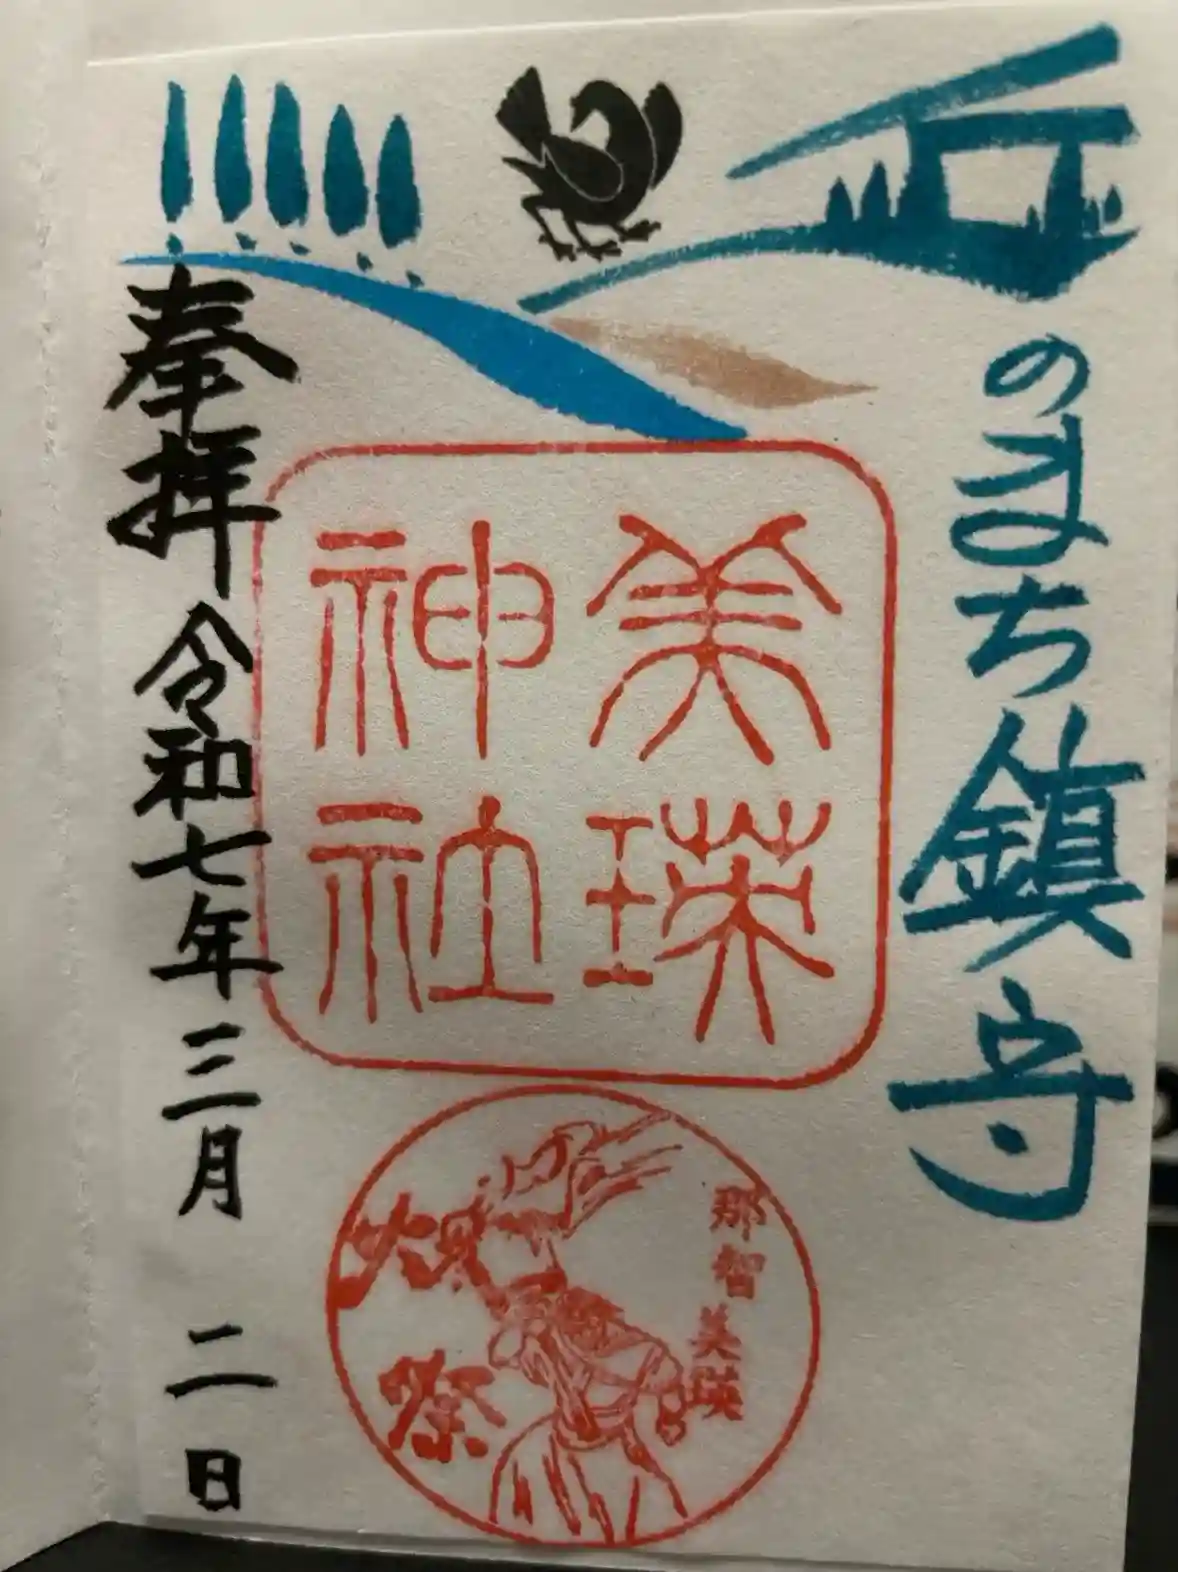 丘のまち鎮守
美瑛
神社
那智美瑛
火祭
奉拝 令和七年三月二日